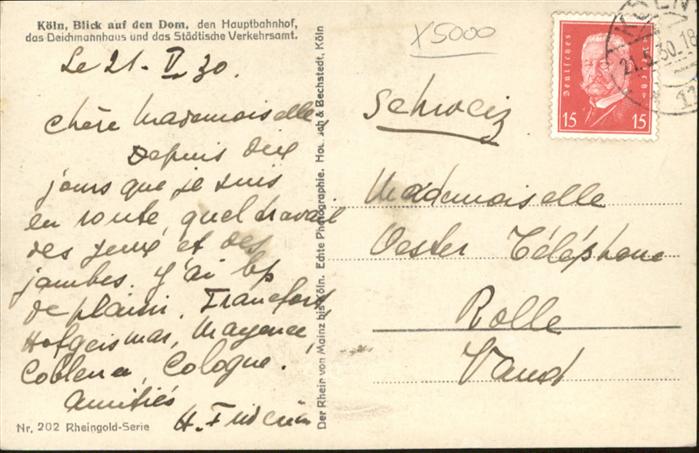 Köln, Blick auf den Dom, den Hauptbahnhof,
das Deichmannhaus und das Städtische Verkehrsamt.
X5000
Le 21. V. 30.
Chère Mademoiselle
Depuis dix
jours que je suis
en route, quel travail
des yeux et des
jambes. J'ai bp
de plaisir. Francfort
Hofgeismar, Mayence,
Coblence, Cologne.
Amitiés
H.
Nr. 202 Rheingold-Serie
Der Rhein von Mainz bis Köln. Echte Photographie. & Bechstedt, Köln
Deutsches Reich
15 15
KÖLN
21.5.30.18
Schweiz
Mademoiselle
Oester Téléphone
Rolle
Vaud